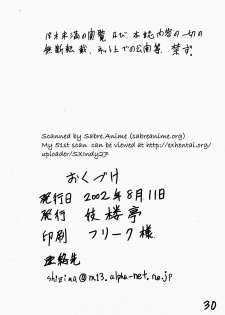 18才未満の閲覧及び、本誌内容の一切の
無断転載、ネット上での公開等、禁ず。
Scanned by Sabre.Anime (sabreanime.org)
My 51st scan can be viewed at http://exhentai.org/
uploader/SXIndy27
おくづけ
発行日 2002年8月11日
発行 伎楼亭
印刷 フリーク様
連絡先
shizima@m13.alpha-net.ne.jp
30